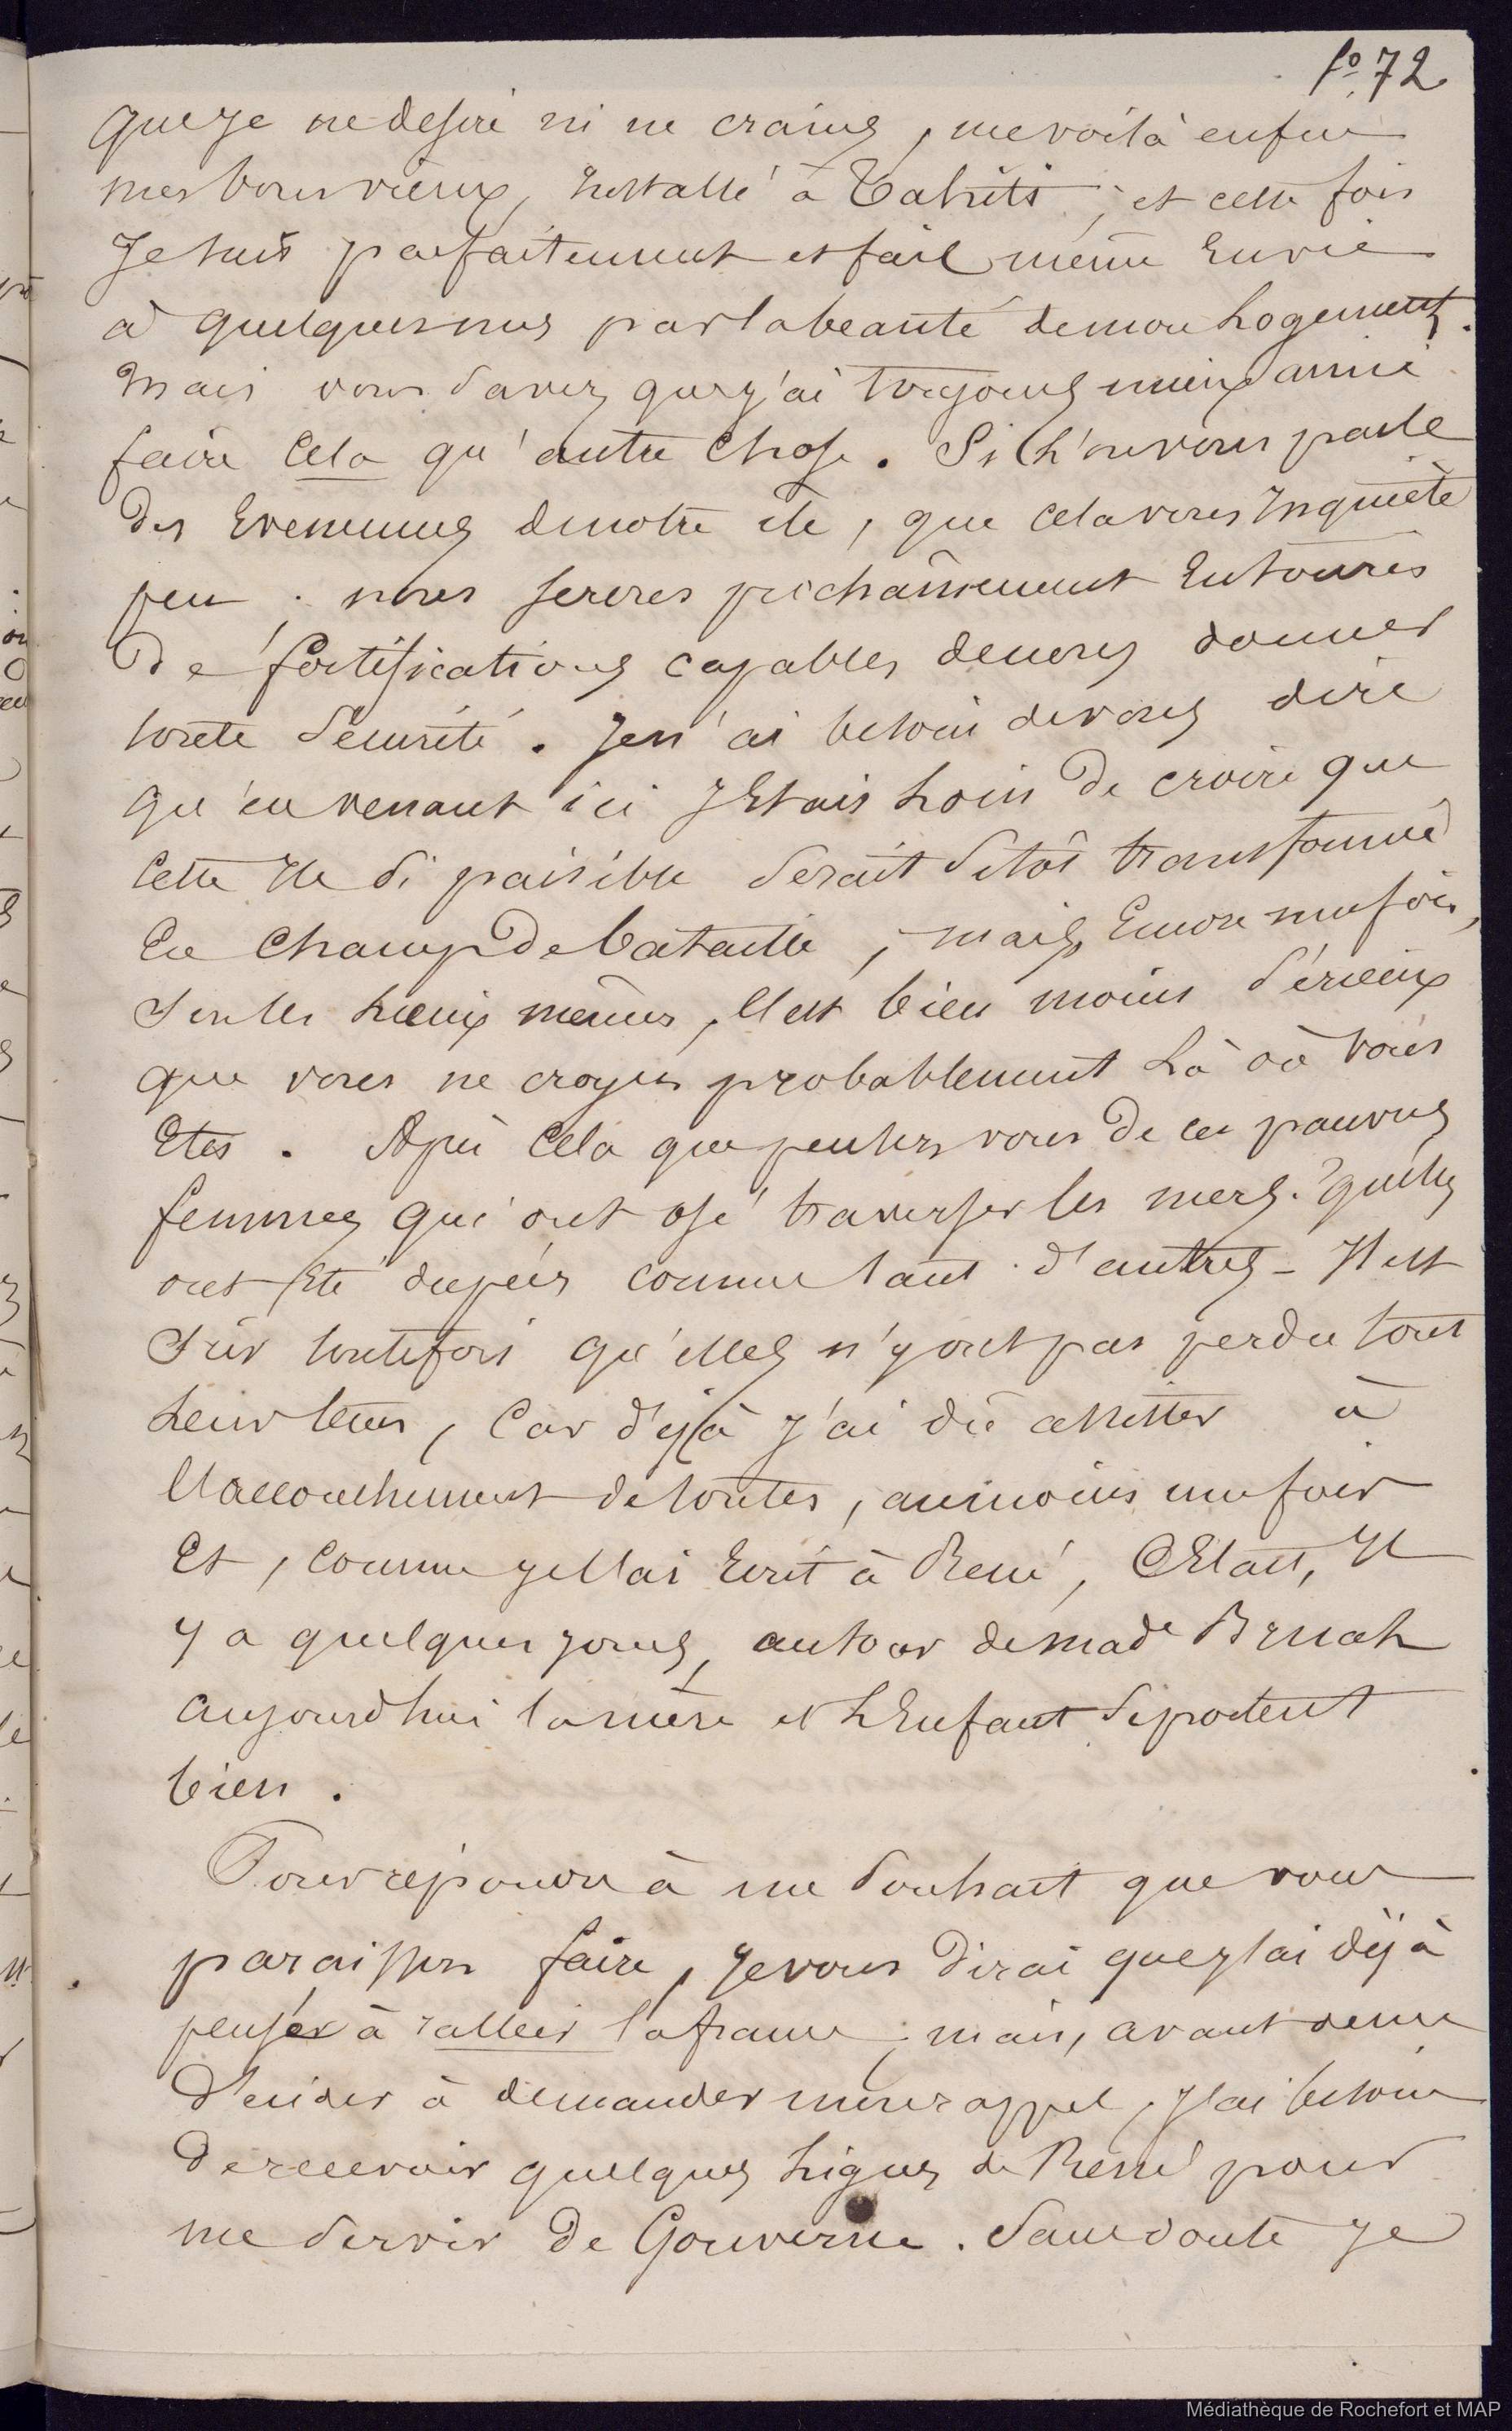 fo. 72
que je ne desire ni ne crains, me voilà enfin
mes bons vieux, installé à Tahiti ; et cette fois
Je suis parfaitement et fais même Envie
à quelques uns par la beauté de mon Logement.
Mais vous savez que j'ai toujours mieux aimé
faire Cela qu'autre Chose. Si L'on vous parle
des Evenements de notre île, que cela vous Inquiète
peu . nous serons prochainement Entourés
De fortifications capables de nous donner
toute sécurité. Je n'ai besoin de vous dire
qu'en venant ici J'Etais Loin De croire que
Cette Ile si paisible serait sitôt transformée
En Champ De bataille, mais, Encore une fois,
sur les Lieux mêmes, Il est bien moins sérieux
que vous ne croyez probablement Là où vous
Etes . Après Cela que pensez vous De ces pauvres
femmes qui ont osé traverser les mers ? qu'elles
ont Eté dupées comme tant d'autres - Il est
sûr toutefois qu'elles n'y ont pas perdu tout
Leur tems, Car déjà j'ai dû assister à
l'accouchement de toutes, au moins une fois
Et, comme je l'ai Ecrit à René, C'Etait, Il
y a quelques jours, autour de Made Bruat
aujourd'hui la mère et L'Enfant se portent
bien .
Pour répondre à un souhait que vous
paraissez faire, je vous dirai que j'ai déjà
penser à rallier la france ; mais, avant de me
Décider à demander mon rappel, j'ai besoin
De recevoir quelques Lignes de René pour
me servir De Gouverne . Sans doute je
Médiathèque de Rochefort et MAP